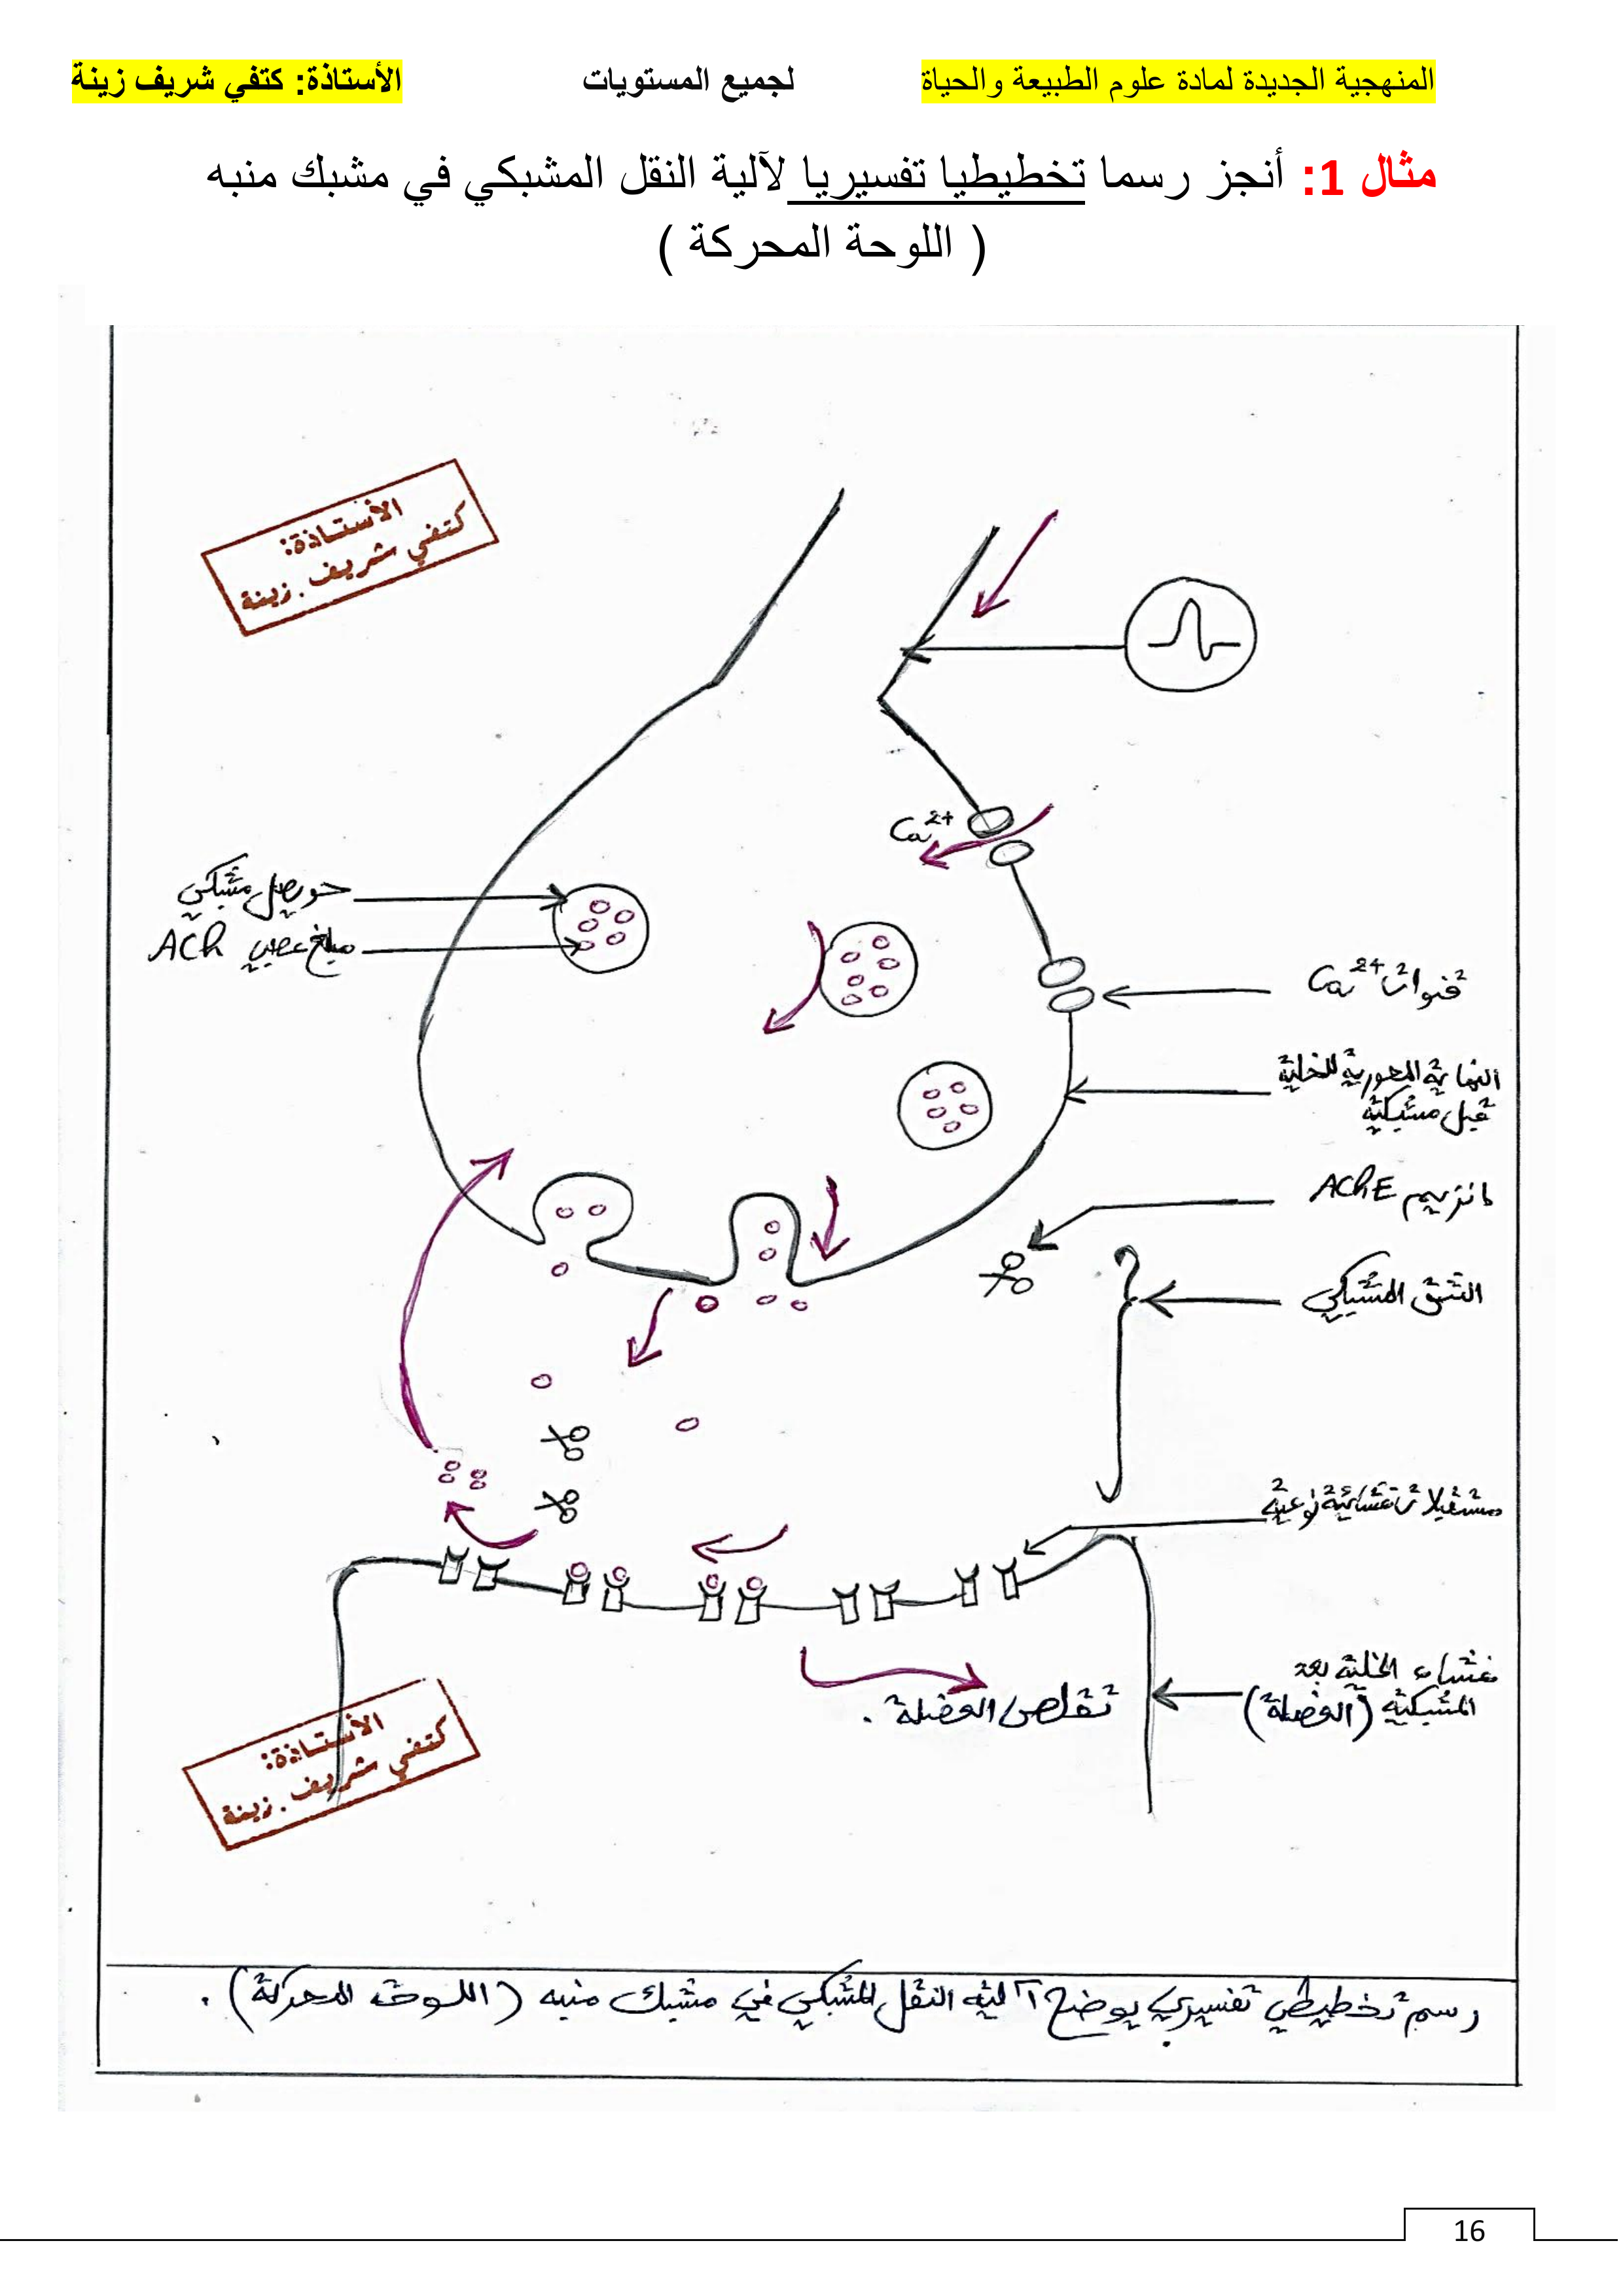 المنهجية الجديدة لمادة علوم الطبيعة والحياة لجميع المستويات الأستاذة: كتفي شريف زينة
مثال 1: أنجز رسما تخطيطيا تفسيريا لآلية النقل المشبكي في مشبك منبه
( اللوحة المحركة )
الأستاذة:
كتفي شريف. زينة
Ca²⁺
حويصل مشبكي
مبلغ عصبي ACh
قنوات Ca²⁺
النهاية المحورية للخلية
قبل مشبكية
انزيم AChE
الشق المشبكي
مستقبلات غشائية نوعية
غشاء الخلية بعد
المشبكية (العضلة)
تقلص العضلة.
الأستاذة:
كتفي شريف. زينة
رسم تخطيطي تفسيري يوضح آلية النقل المشبكي في مشبك منبه (اللوحة المحركة).
16